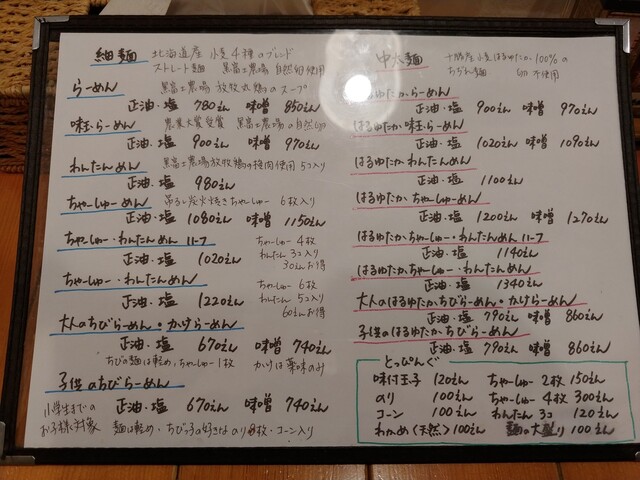 細麺 北海道産 小麦4種のブレンド
ストレート麺 黒富士農場 自然卵使用
らーめん 黒富士農場 放牧丸鶏のスープ
正油・塩 780えん 味噌 850えん
味玉らーめん 農業大賞受賞 黒富士農場の自然卵
正油・塩 900えん 味噌 970えん
わんたんめん 黒富士農場放牧鶏の挽肉使用 5コ入り
正油・塩 980えん
ちゃーしゅーめん 吊るし炭火焼きちゃーしゅー 6枚入り
正油・塩 1080えん 味噌 1150えん
ちゃーしゅー・わんたんめん ハーフ ちゃーしゅー 4枚
わんたん 3コ入り
正油・塩 1020えん 30えんお得
ちゃーしゅー・わんたんめん ちゃーしゅー 6枚
わんたん 5コ入り
正油・塩 1220えん 60えんお得
大人のちびらーめん・かけらーめん
正油・塩 670えん 味噌 740えん
ちびの麺は軽め、ちゃーしゅー1枚 かけは薬味のみ
子供のちびらーめん
小学生までの 正油・塩 670えん 味噌 740えん
お子様対象 麺は軽め・ちびっ子の好きな のり 枚・コーン入り
中太麺 十勝産小麦はるゆたか100%の
ちぢれ麺 卵不使用
はるゆたからーめん
正油・塩 900えん 味噌 970えん
はるゆたか味玉らーめん
正油・塩 1020えん 味噌 1090えん
はるゆたかわんたんめん
正油・塩 1100えん
はるゆたかちゃーしゅーめん
正油・塩 1200えん 味噌 1270えん
はるゆたかちゃーしゅー・わんたんめん ハーフ
正油・塩 1140えん
はるゆたかちゃーしゅー・わんたんめん
正油・塩 1340えん
大人のはるゆたかちびらーめん・かけらーめん
正油・塩 790えん 味噌 860えん
子供のはるゆたかちびらーめん
正油・塩 790えん 味噌 860えん
とっぴんぐ
味付玉子 120えん ちゃーしゅー2枚 150えん
のり 100えん ちゃーしゅー4枚 300えん
コーン 100えん わんたん3コ 120えん
わかめ(天然)100えん 麺の大盛り 100えん